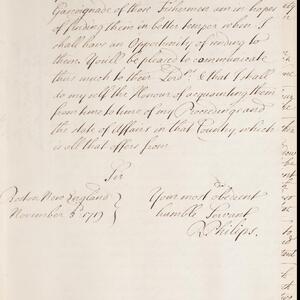 Gasconade of those Fishermen am in hopes
of finding them in better temper when I
shall have an Opportunity of sending to
them. You'll be pleased to communicate
thus much to their Lordps. & that I shall
do my self the Honour of acquainting them
from time to time of my Proceedings and
the state of Affairs in that Country which
is all that offers from
Sir
Boston New England
November 3d. 1719
Your most obedient
humble Servant
R Philips.